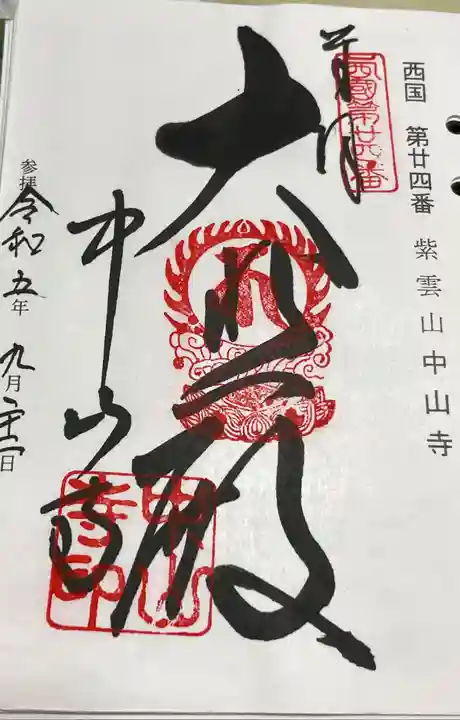 西国 第廿四番 紫雲山中山寺
奉拝
西國第廿四番
大悲殿
中山寺
中山寺印
参拝 令和五年 九月二十一日